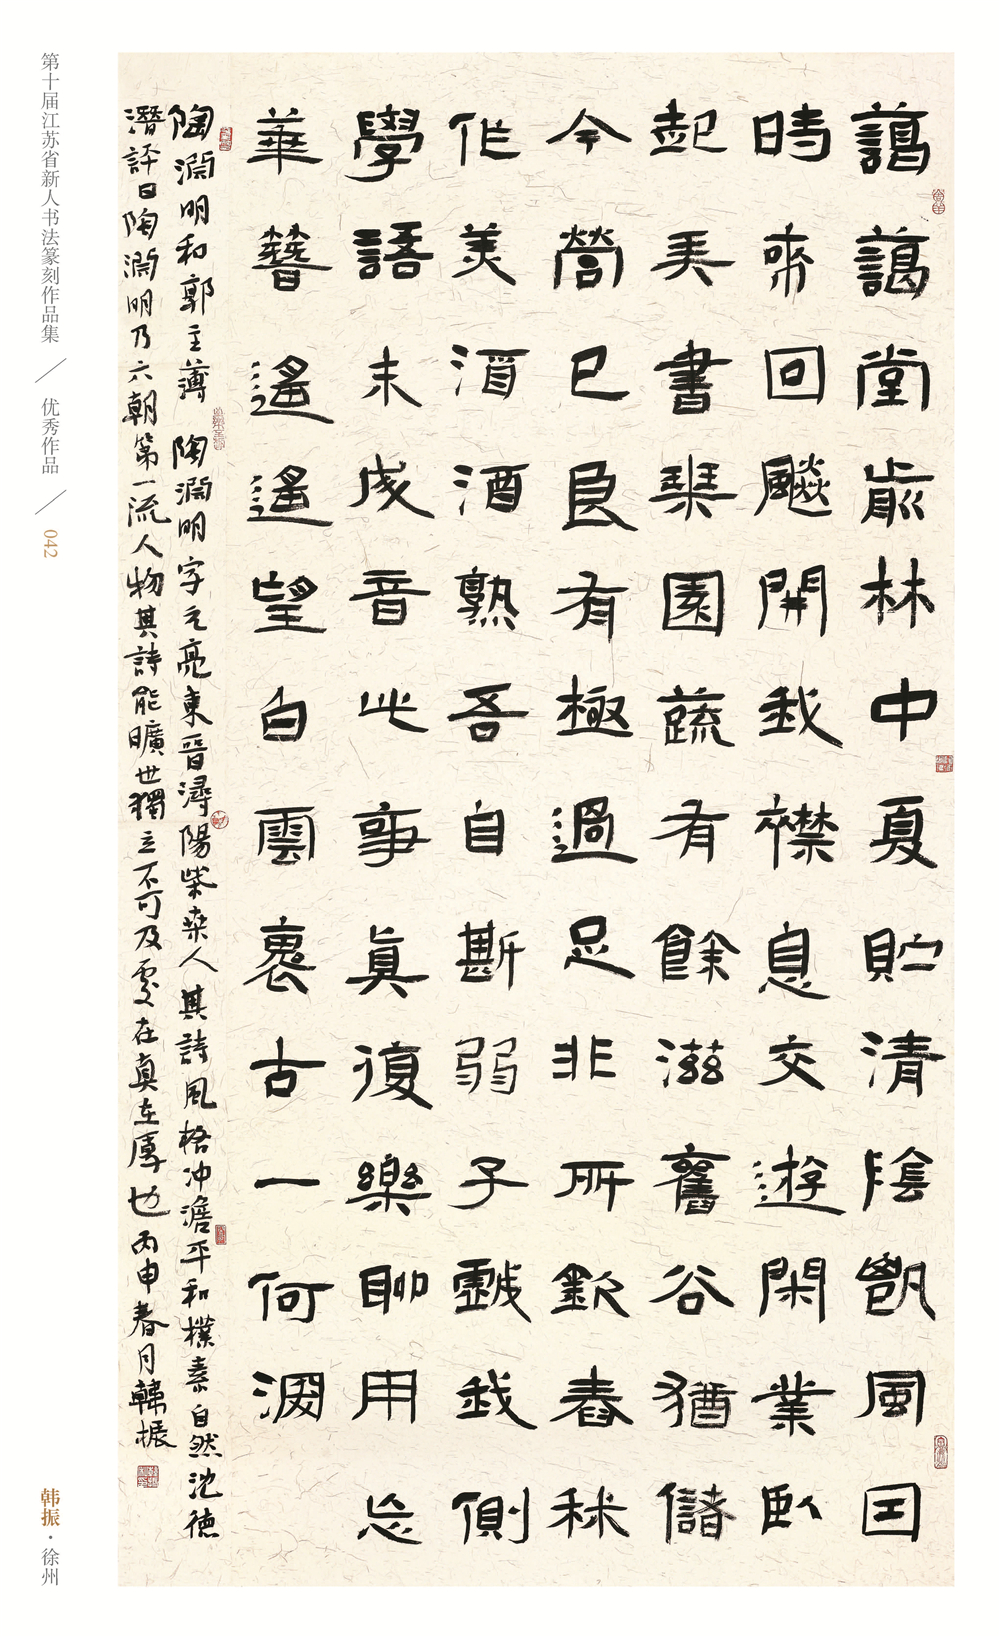 藹藹堂前林中夏貯清陰凱風因
時來回飈開我襟息交遊閑業臥
起弄書琴園蔬有餘滋舊谷猶儲
今營己良有極過足非所欽舂秫
作美酒酒熟吾自斟弱子戲我側
學語未成音此事真復樂聊用忘
華簪遙遙望白雲褱古一何深
陶淵明和郭主薄 陶淵明字元亮東晉潯陽柴桑人其詩風格冲澹平和樸素自然沈德
潛評曰陶淵明乃六朝第一流人物其詩能曠世獨立不可及處在真在厚也丙申春月韓振
第十届江苏省新人书法篆刻作品集 / 优秀作品 / 042
韩振·徐州